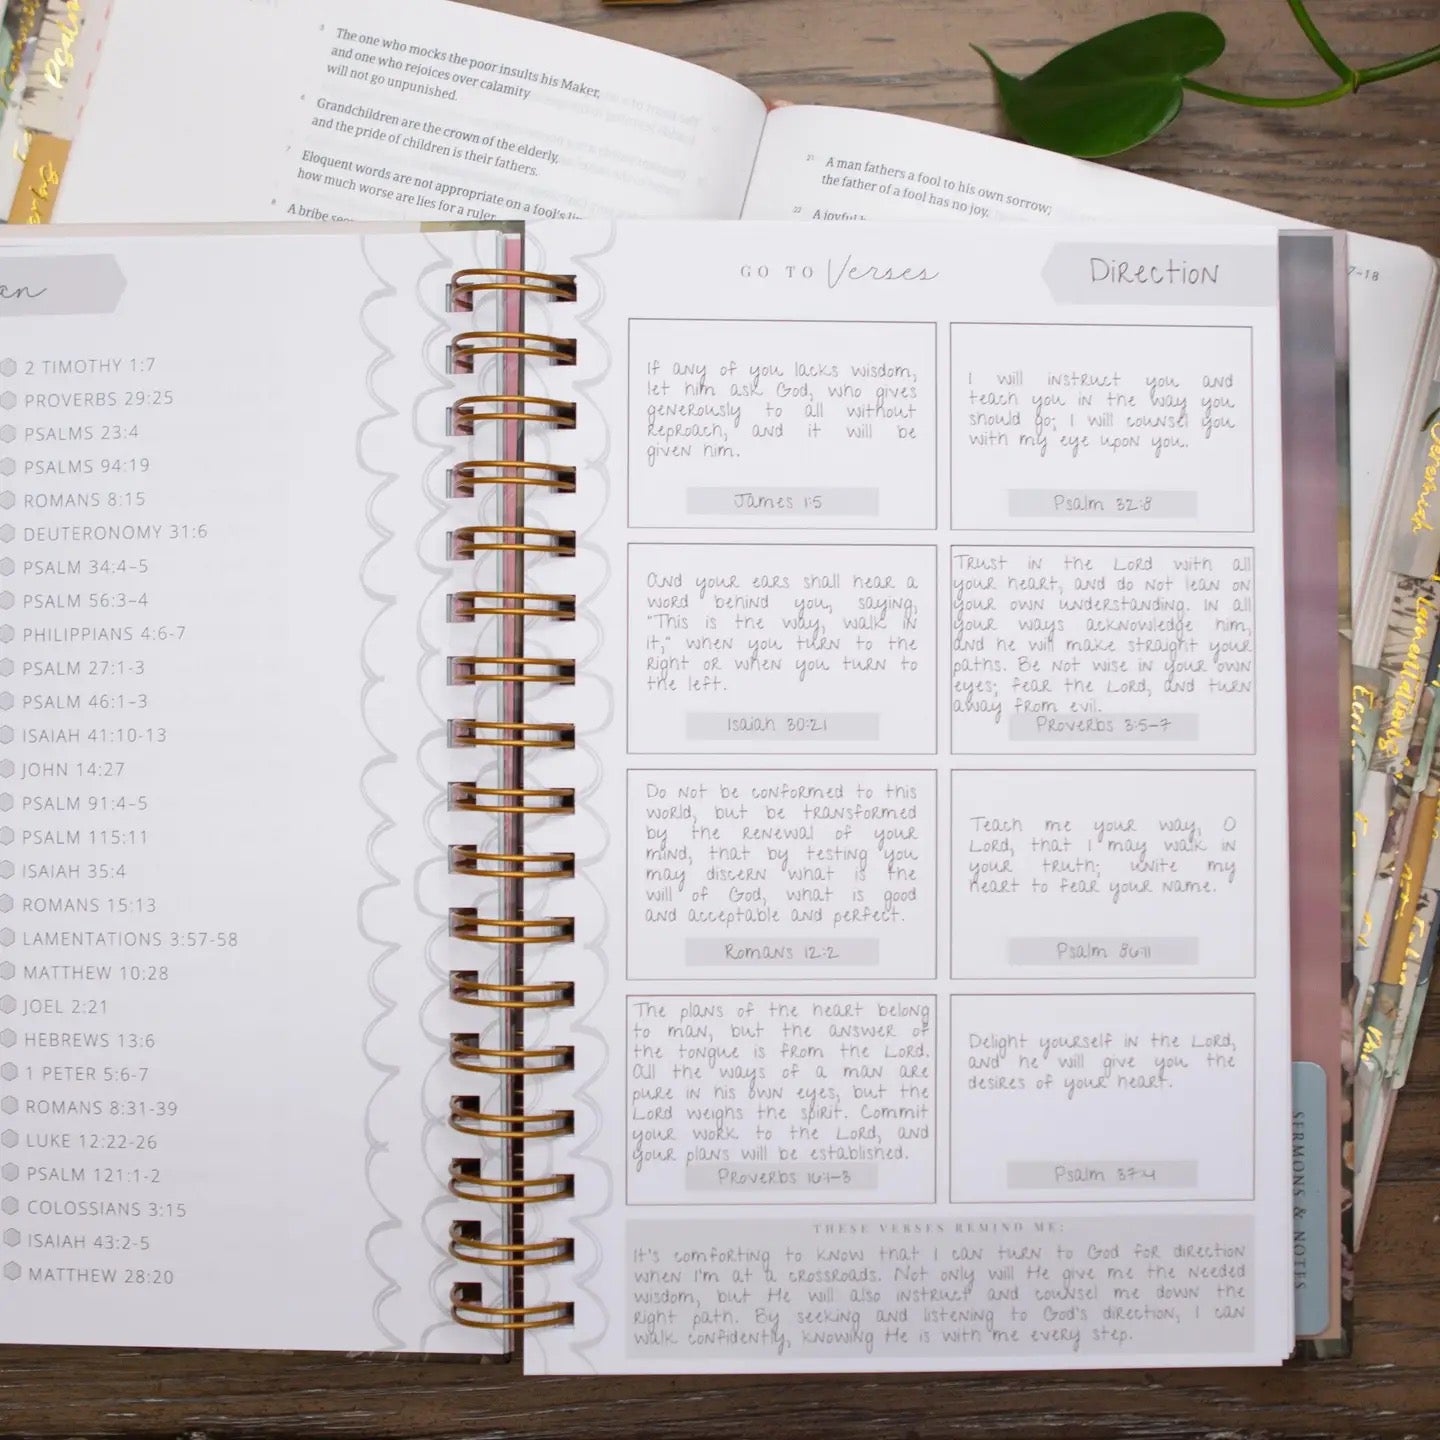 5 The one who mocks the poor insults his Maker,
and one who rejoices over calamity
will not go unpunished.
6 Grandchildren are the crown of the elderly,
and the pride of children is their fathers.
7 Eloquent words are not appropriate on a fool's
how much worse are lies for a ruler
8 A bribe
21 A man fathers a fool to his own sorrow;
the father of a fool has no joy.
22 A joyful
7-18
Psalm
2 TIMOTHY 1:7
PROVERBS 29:25
PSALMS 23:4
PSALMS 94:19
ROMANS 8:15
DEUTERONOMY 31:6
PSALM 34:4-5
PSALM 56:3-4
PHILIPPIANS 4:6-7
PSALM 27:1-3
PSALM 46:1-3
ISAIAH 41:10-13
JOHN 14:27
PSALM 91:4-5
PSALM 115:11
ISAIAH 35:4
ROMANS 15:13
LAMENTATIONS 3:57-58
MATTHEW 10:28
JOEL 2:21
HEBREWS 13:6
1 PETER 5:6-7
ROMANS 8:31-39
LUKE 12:22-26
PSALM 121:1-2
COLOSSIANS 3:15
ISAIAH 43:2-5
MATTHEW 28:20
GO TO Verses
DIRECTION
If any of you lacks wisdom,
let him ask God, who gives
generously to all without
reproach, and it will be
given him.
James 1:5
I will instruct you and
teach you in the way you
should go; I will counsel you
with my eye upon you.
Psalm 32:8
And your ears shall hear a
word behind you, saying,
"This is the way, walk in
it," when you turn to the
right or when you turn to
the left.
Isaiah 30:21
Trust in the Lord with all
your heart, and do not lean on
your own understanding. In all
your ways acknowledge him,
and he will make straight your
paths. Be not wise in your own
eyes; fear the Lord, and turn
away from evil.
Proverbs 3:5-7
Do not be conformed to this
world, but be transformed
by the renewal of your
mind, that by testing you
may discern what is the
will of God, what is good
and acceptable and perfect.
Romans 12:2
Teach me your way, O
Lord, that I may walk in
your truth; unite my
heart to fear your name.
Psalm 86:11
The plans of the heart belong
to man, but the answer of
the tongue is from the Lord.
All the ways of a man are
pure in his own eyes, but the
Lord weighs the spirit. Commit
your work to the Lord, and
your plans will be established.
Proverbs 16:1-3
Delight yourself in the Lord,
and he will give you the
desires of your heart.
Psalm 37:4
THESE VERSES REMIND ME:
It's comforting to know that I can turn to God for direction
when I'm at a crossroads. Not only will He give me the needed
wisdom, but He will also instruct and counsel me down the
right path. By seeking and listening to God's direction, I can
walk confidently, knowing He is with me every step.
SERMONS & NOTES
Jeremiah
Lamentations